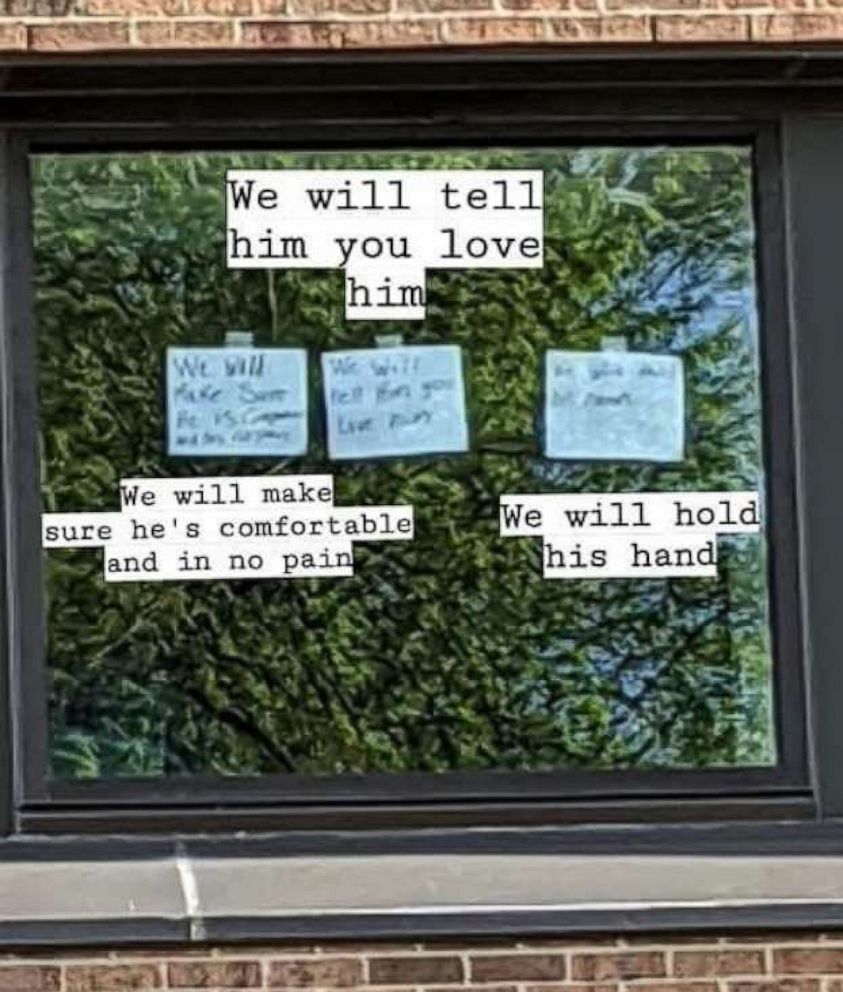 We will tell
him you love
him
We Will
Make Sure
He is
We Will
tell him you
Love him
We will make
sure he's comfortable
and in no pain
We will hold
his hand